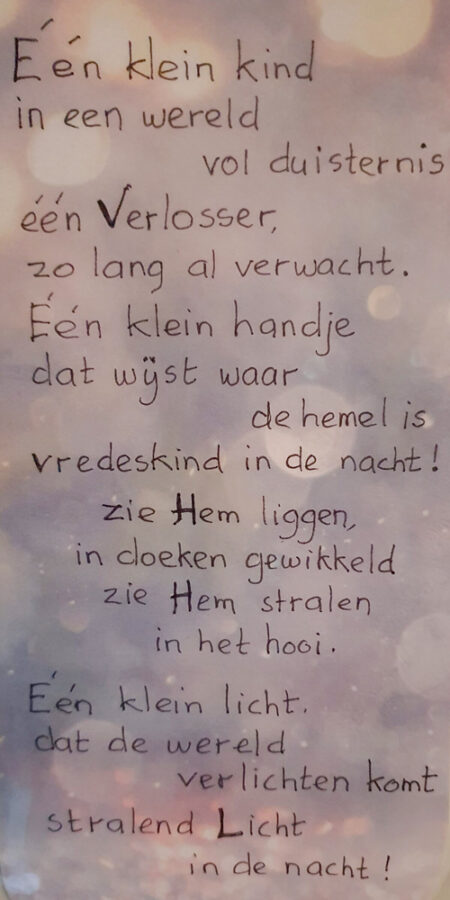 Één klein kind
in een wereld
vol duisternis
één Verlosser,
zo lang al verwacht.
Één klein handje
dat wijst waar
de hemel is
vredeskind in de nacht!
zie Hem liggen,
in doeken gewikkeld
zie Hem stralen
in het hooi.
Één klein licht.
dat de wereld
verlichten komt
stralend Licht
in de nacht!